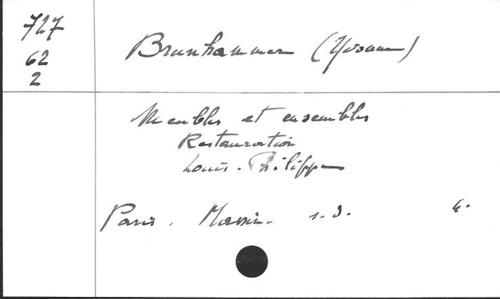 727
62
2
Brunhammer (Yvonne)
Meubles et ensembles
Restauration
Louis-Philippe
Paris. Massin. s.d. 4.